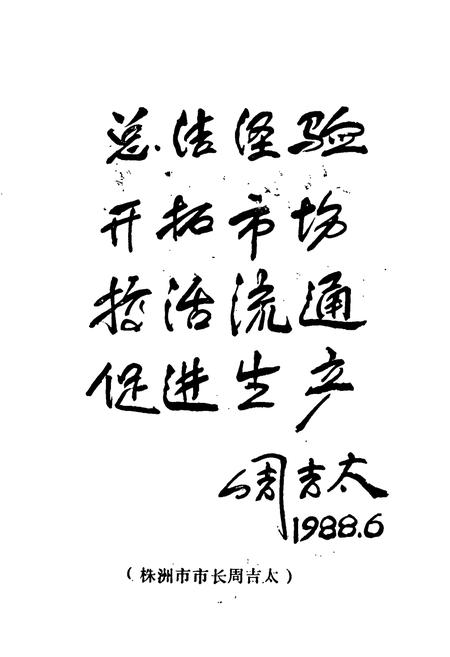 总结经验
开拓市场
搞活流通
促进生产
周吉太
1988.6
(株洲市市长周吉太)